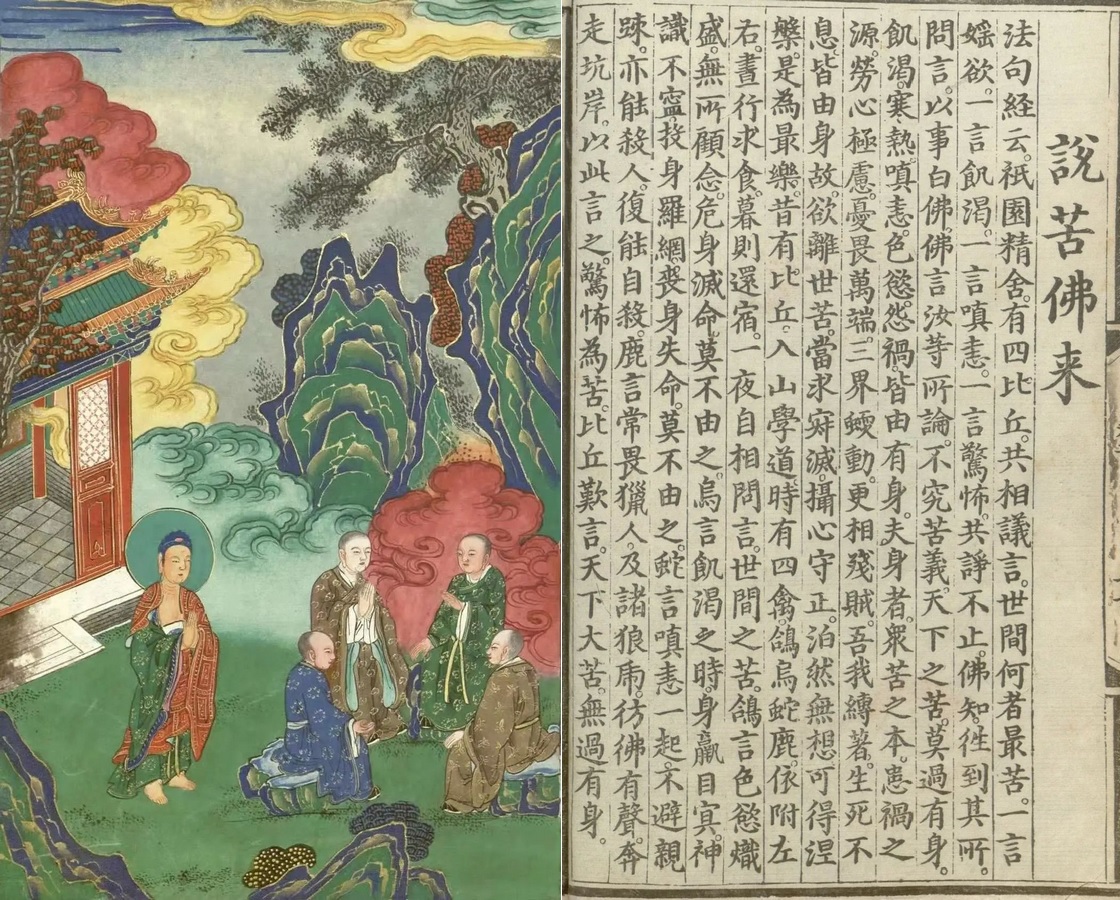 說苦佛来
法句経云。祇園精舍。有四比丘。共相議言。世間何者最苦。一言
婬欲。一言飢渴。一言嗔恚。一言驚怖。共諍不止。佛知。徃到其所。
問言。以事白佛。佛言汝等所論。不究苦義。天下之苦。莫過有身。
飢渴。寒熱。嗔恚。色慾。怨禍。皆由有身。夫身者。衆苦之本。患禍之
源。勞心極慮。憂畏萬端。三界蝡動。更相殘賊。吾我縛著。生死不
息。皆由身故。欲離世苦。當求寂滅。攝心守正。泊然無想。可得涅
槃。是為最樂。昔有比丘。入山學道。時有四禽。鴿烏蛇鹿。依附左
右。晝行求食。暮則還宿。一夜自相問言。世間之苦。鴿言色慾熾
盛。無所顧念。危身滅命。莫不由之。烏言飢渴之時。身羸目冥。神
識不寧。投身羅網。喪身失命。莫不由之。蛇言嗔恚一起。不避親
踈。亦能殺人。復能自殺。鹿言常畏獵人。及諸狼虎。彷彿有聲。奔
走坑岸。以此言之。驚怖為苦。比丘歎言。天下大苦。無過有身。